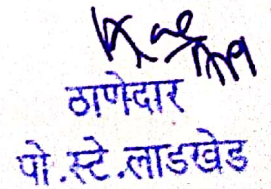 ठाणेदार
पो.स्टे.लाडखेड